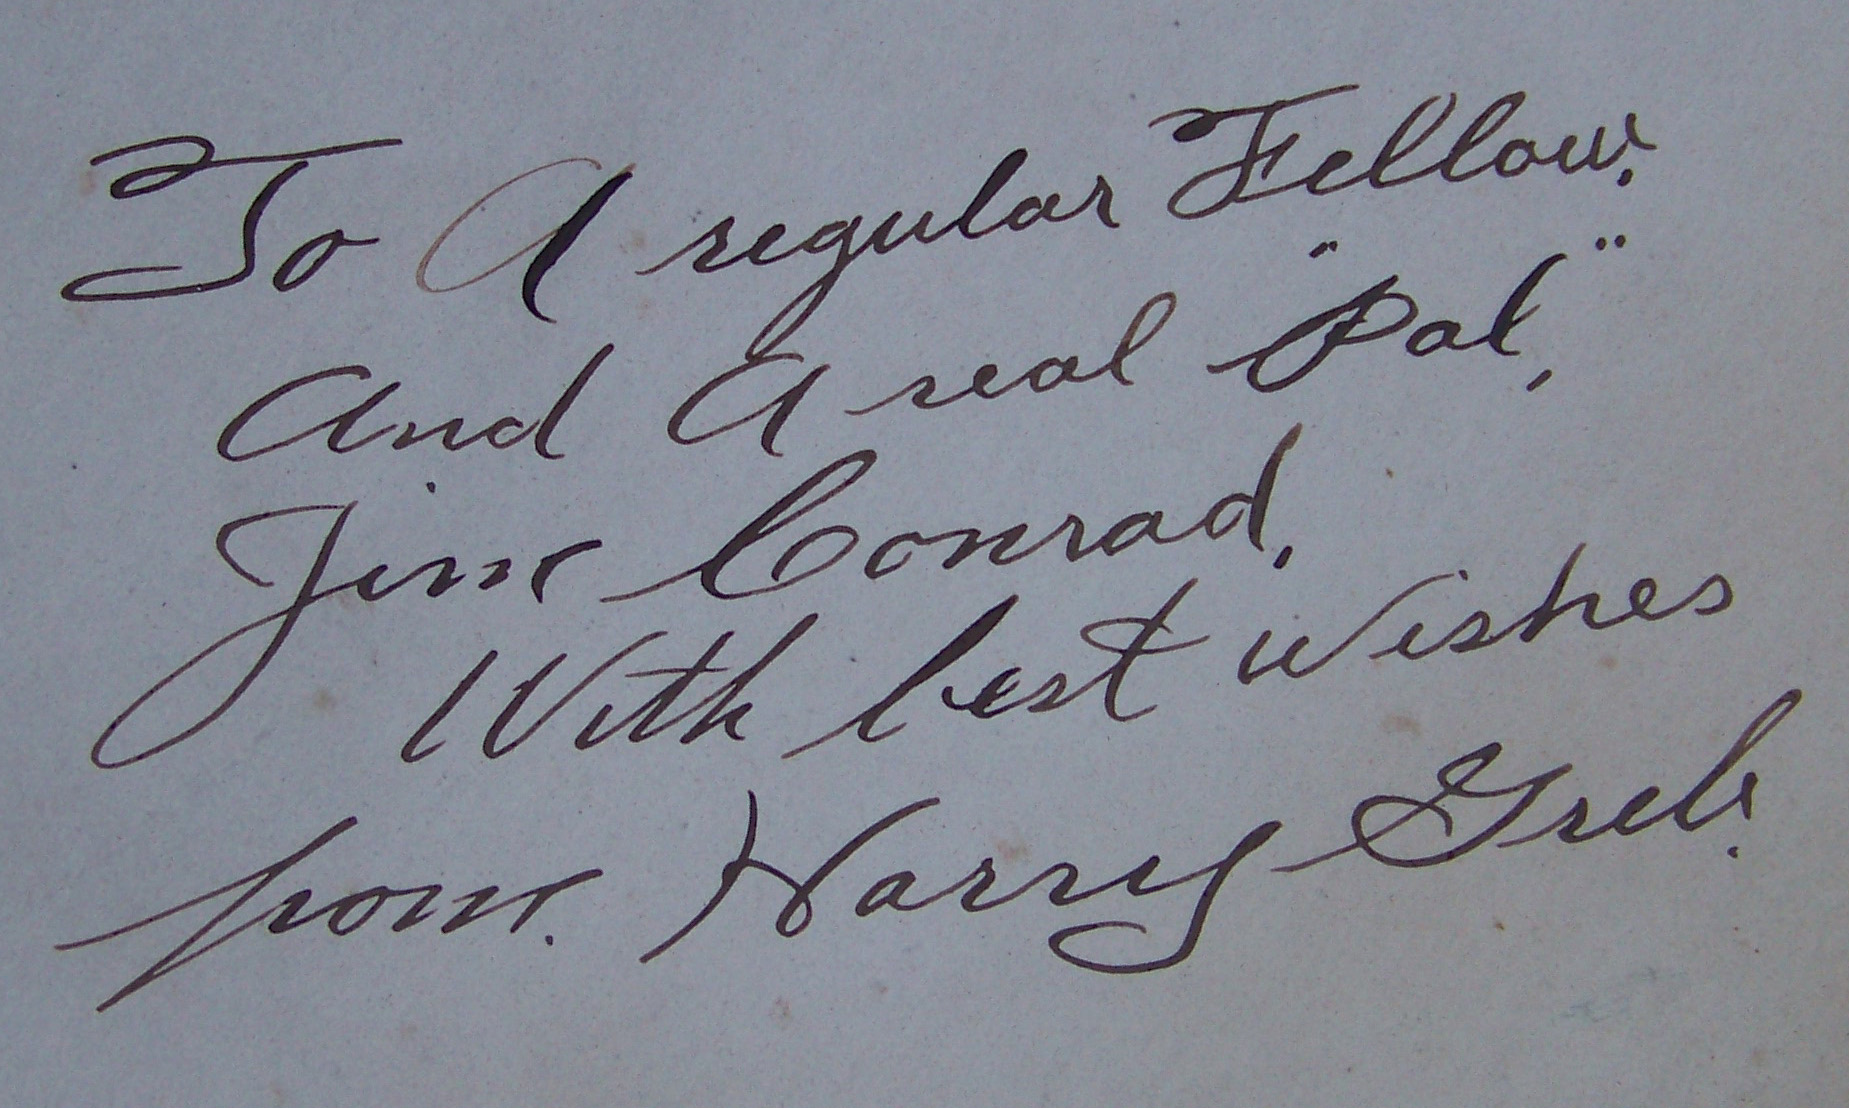 To A regular Fellow.
And A real "Pal,"
Jim Conrad.
With best wishes
from. Harry Greb.